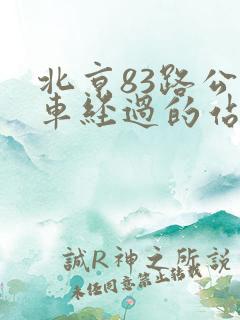 北京83路公
車經過的佔
誠R神之所説
未任同意禁止转载